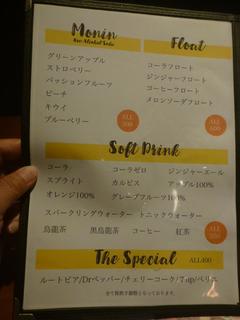 Monin
Non Alcohol Soda
グリーンアップル
ストロベリー
パッションフルーツ
ピーチ
キウイ
ブルーベリー
ALL
Float
コーラフロート
ジンジャーフロート
コーヒーフロート
メロンソーダフロート
ALL
Soft Drink
コーラ コーラゼロ ジンジャーエール
スプライト カルピス アップル100%
オレンジ100% グレープフルーツ100%
スパークリングウォーター トニックウォーター
烏龍茶 黒烏龍茶 コーヒー 紅茶
ALL
The Special ALL400
ルートビア/Drペッパー/チェリーコーク/7up/ペリエ
全て税抜き価格となっております。